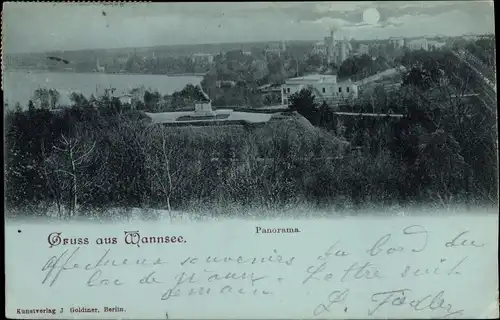 Gruss aus Wannsee.
Panorama.
Affectueux souvenirs du bord du
lac de Wannsee. Lettre suit
demain
Kunstverlag J. Goldiner, Berlin.